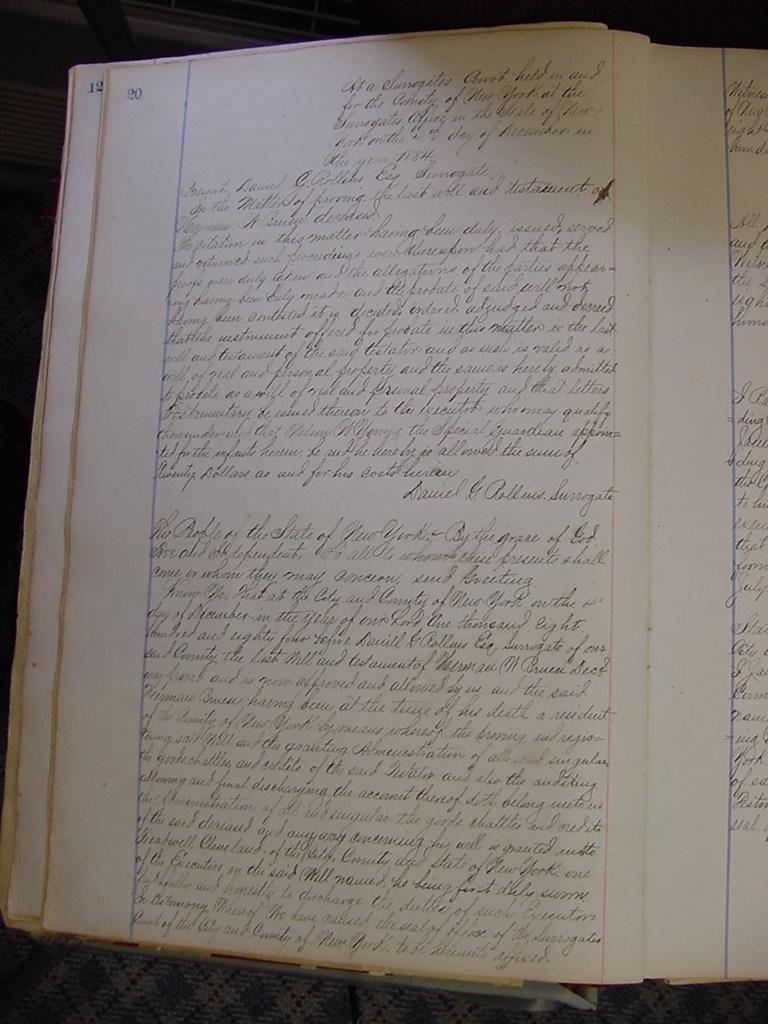 12
20
At a Surrogates Court held in and
for the County of New York at the
Surrogates Office in the State of New
York on the day of December in
the year 1884
Present, Daniel G. Rollins Esq Surrogate.
In the Matter of proving the last will and testament of
Herman W Bruen deceased.
The citation in this matter having been duly issued, served
and returned such proceedings were thereupon had that the
proofs were duly taken and the allegations of the parties appear=
ing having been duly made and the probate of said will not
having been contested it is decided, ordered, adjudged and decreed
that the instrument offered for probate in this matter is the last
will and testament of the said testator and as such is valid as a
will of real and personal property and the same is hereby admitted
to probate as a will of real and personal property and that letters
Testamentary be issued thereon to the executor who may qualify
thereunder and that Nelson W Young the Special Guardian appoin=
ted for the infants herein, be and he hereby is allowed the sum of
Twenty Dollars as and for his costs herein
Daniel G. Rollins. Surrogate
The People of the State of New York, By the grace of God
Free and Independent. To all to whom these presents shall
come or whom they may concern, send Greeting
Know Ye, That at the City and County of New York on the 4th
day of December in the year of our Lord One thousand Eight
hundred and eighty four before Daniell G Rollins Esq Surrogate of our
said County, the last Will and testament of Herman W Bruen Decd
was proved and is now approved and allowed by us, and the said
Herman Bruen, having been at the time of his death a resident
of the County of New York by means whereof the proving and regis=
tering said Will and the granting Administration of all and singular
the goods chattles and credits of the said Testator and also the auditing
allowing and final discharging the account thereof doth belong unto us
the Administration of all and singular the goods chattles and credits
of the said deceased and any way concerning his will is granted unto
Treadwell Cleveland of the City, County and State of New York, one
of the Executors in the said Will named, he being first duly sworn
faithfully and honestly to discharge the duties of such Executor
In testimony Whereof We have caused the seal of office of the Surrogates
Court of the City and County of New York, to be hereunto affixed.